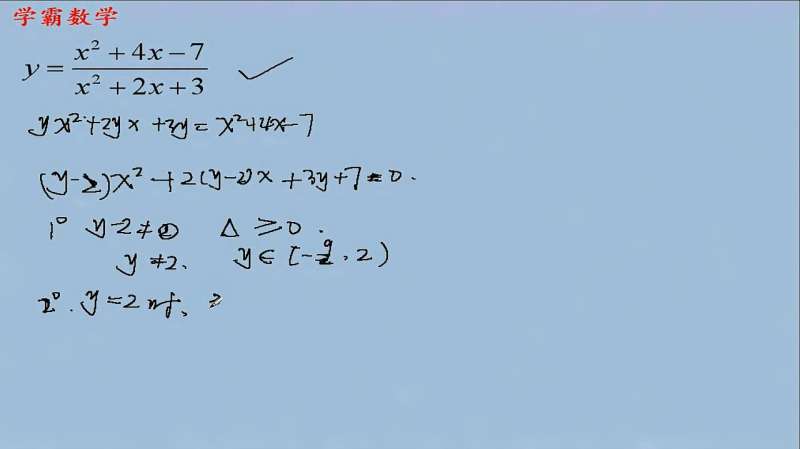 学霸数学
y = (x² + 4x − 7)/(x² + 2x + 3) ✓
yx²+2yx+3y=x²+4x−7
(y−2)x²+2(y−2)x+3y+7=0.
1° y−2≠0 Δ≥0.
y≠2. y∈[−9/2, 2)
2°. y=2时,